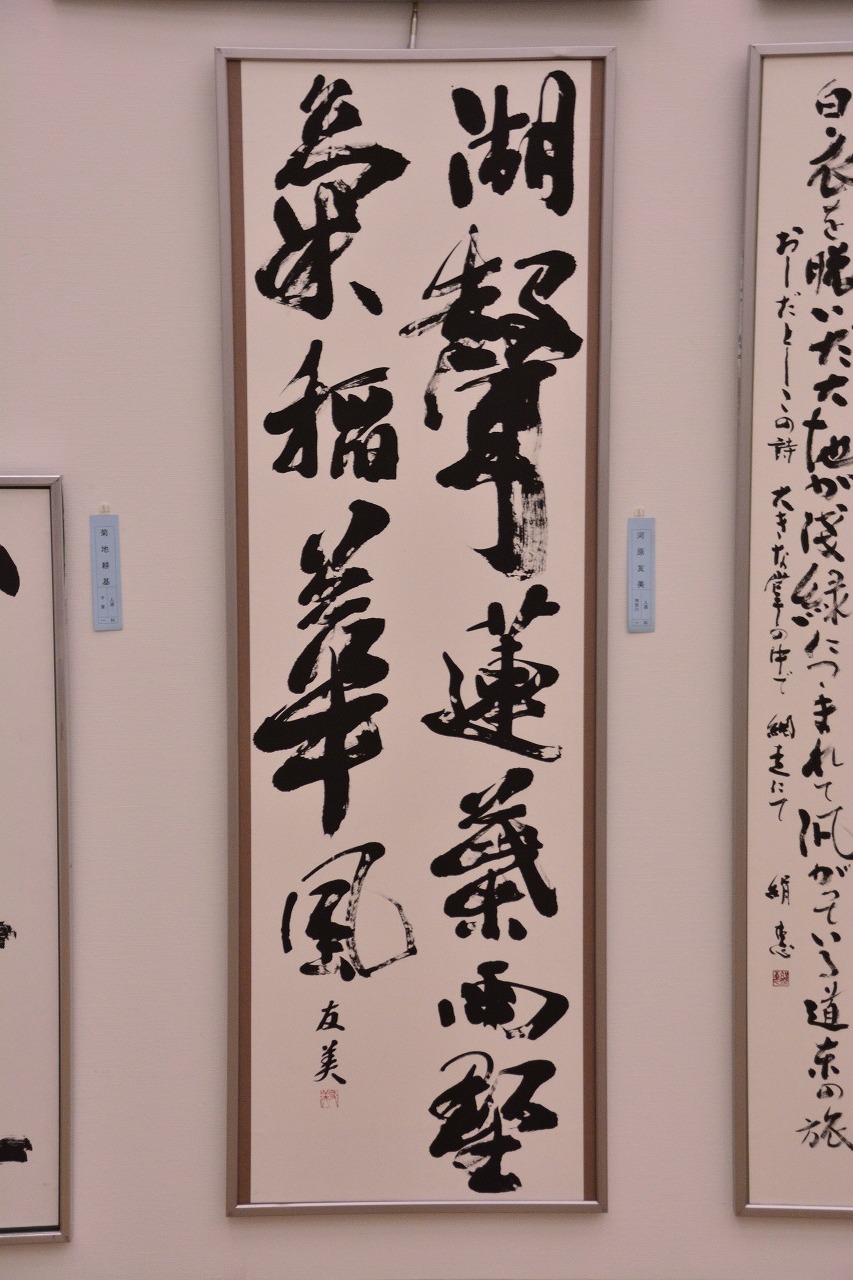 白い衣を脱いだ大地が浅緑につゝまれて がっている道東の旅
おしだとしこの詩 大きな掌の中で 網走にて 絹恵
湖聲蓮葉雨墅
氣稻華風 友美
河原友美
菊地